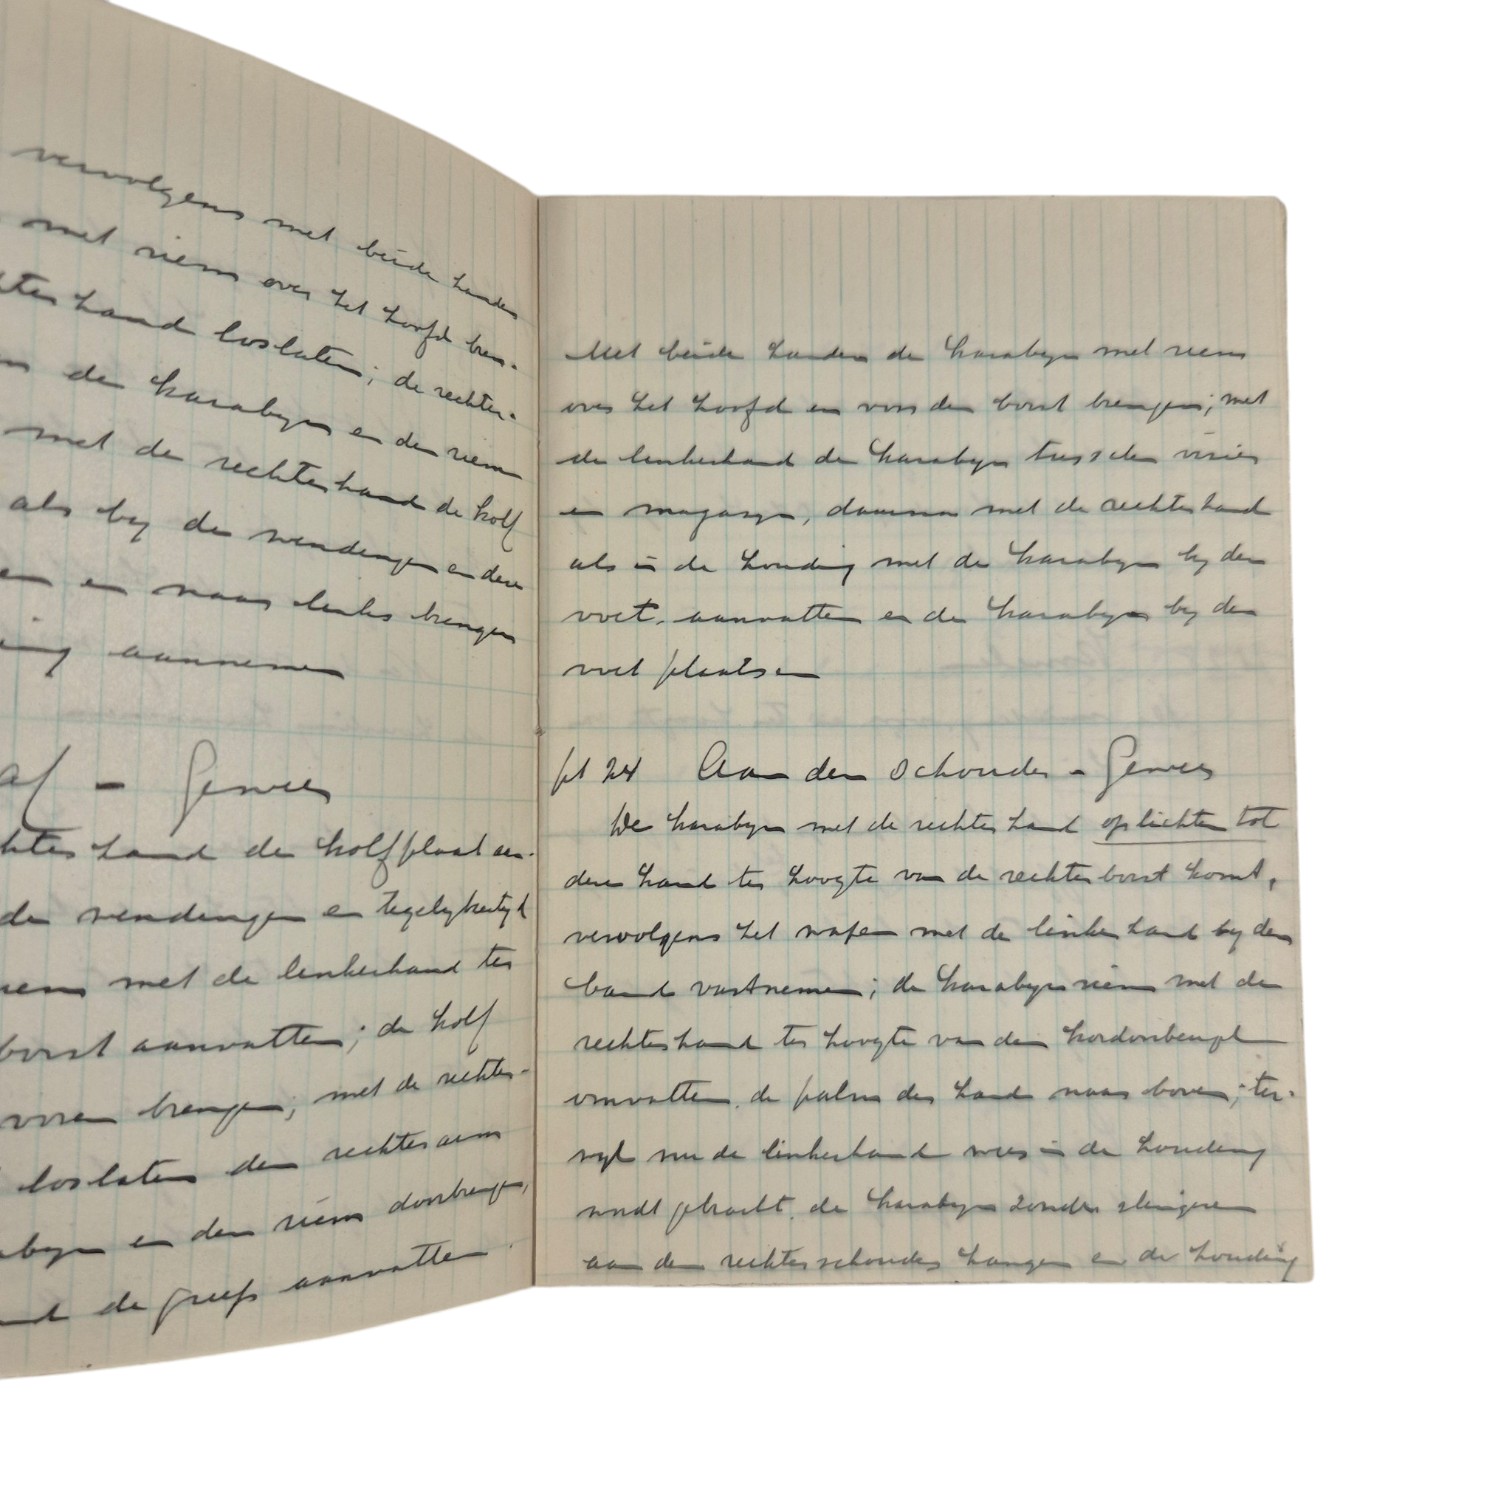 vervolgens met beide handen
met riem over het hoofd bren-
hand loslaten; de rechter-
de karabyn en den riem
met de rechterhand de kolf
als by de wendingen en deze
en naar links brengen
aannemen
af - Geweer
hand de kolfplaat aan-
de wendingen en tegelykertyd
riem met de linkerhand ter
borst aanvatten; de kolf
voren brengen; met de rechter-
loslaten den rechterarm
en den riem doorbrengen,
de greep aanvatten
Met beide handen de karabyn met riem
over het hoofd en voor den borst brengen; met
de linkerhand de karabyn tusschen vizier
en magazyn, daarna met de rechterhand
als in de houding met de karabyn by den
voet, aanvatten en de karabyn by den
voet plaatsen
pt 24 Aan den Schouder - Geweer
De karabyn met de rechterhand oplichten tot
deze hand ter hoogte van de rechterborst komt,
vervolgens het wapen met de linkerhand by den
band vastnemen; de karabynriem met de
rechterhand ter hoogte van den kordonbeugel
omvatten, de palm der hand naar boven; ter-
wyl nu de linkerhand weer in de houding
wordt gebracht, de karabyn zonder slingeren
aan den rechterschouder hangen en de houding